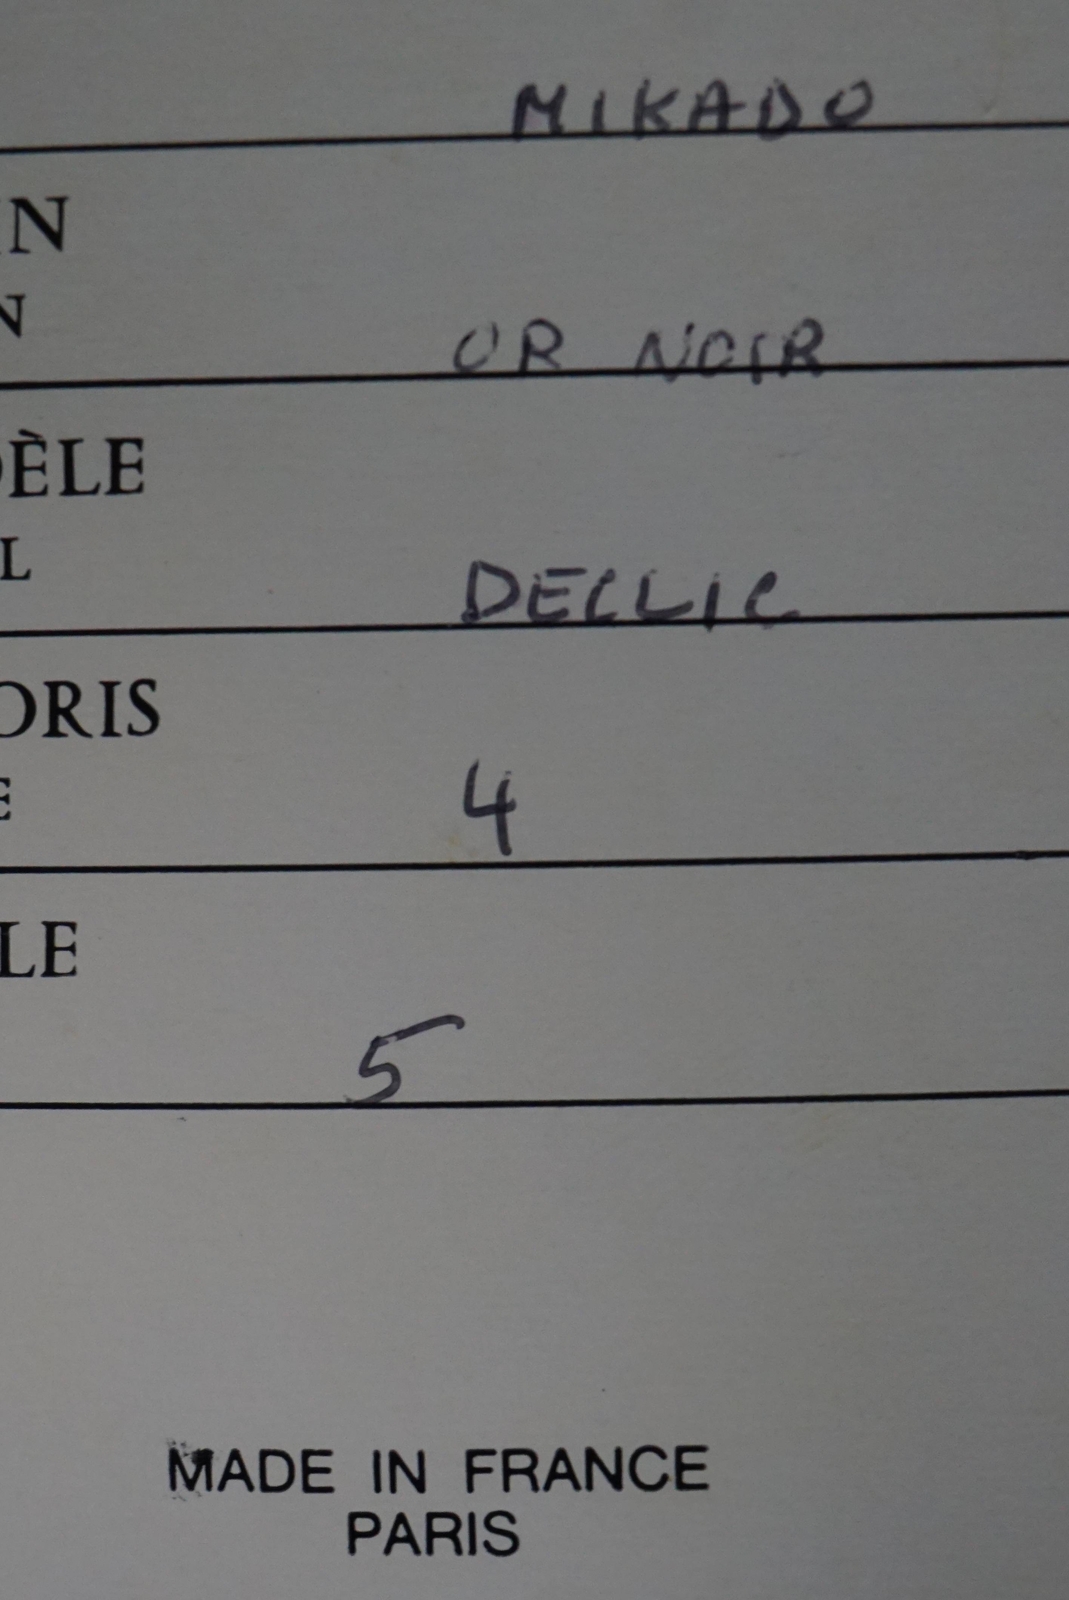 MIKADO
IN
N
OR NOIR
DÈLE
L
DECLIC
ORIS
E
4
LE
5
MADE IN FRANCE
PARIS